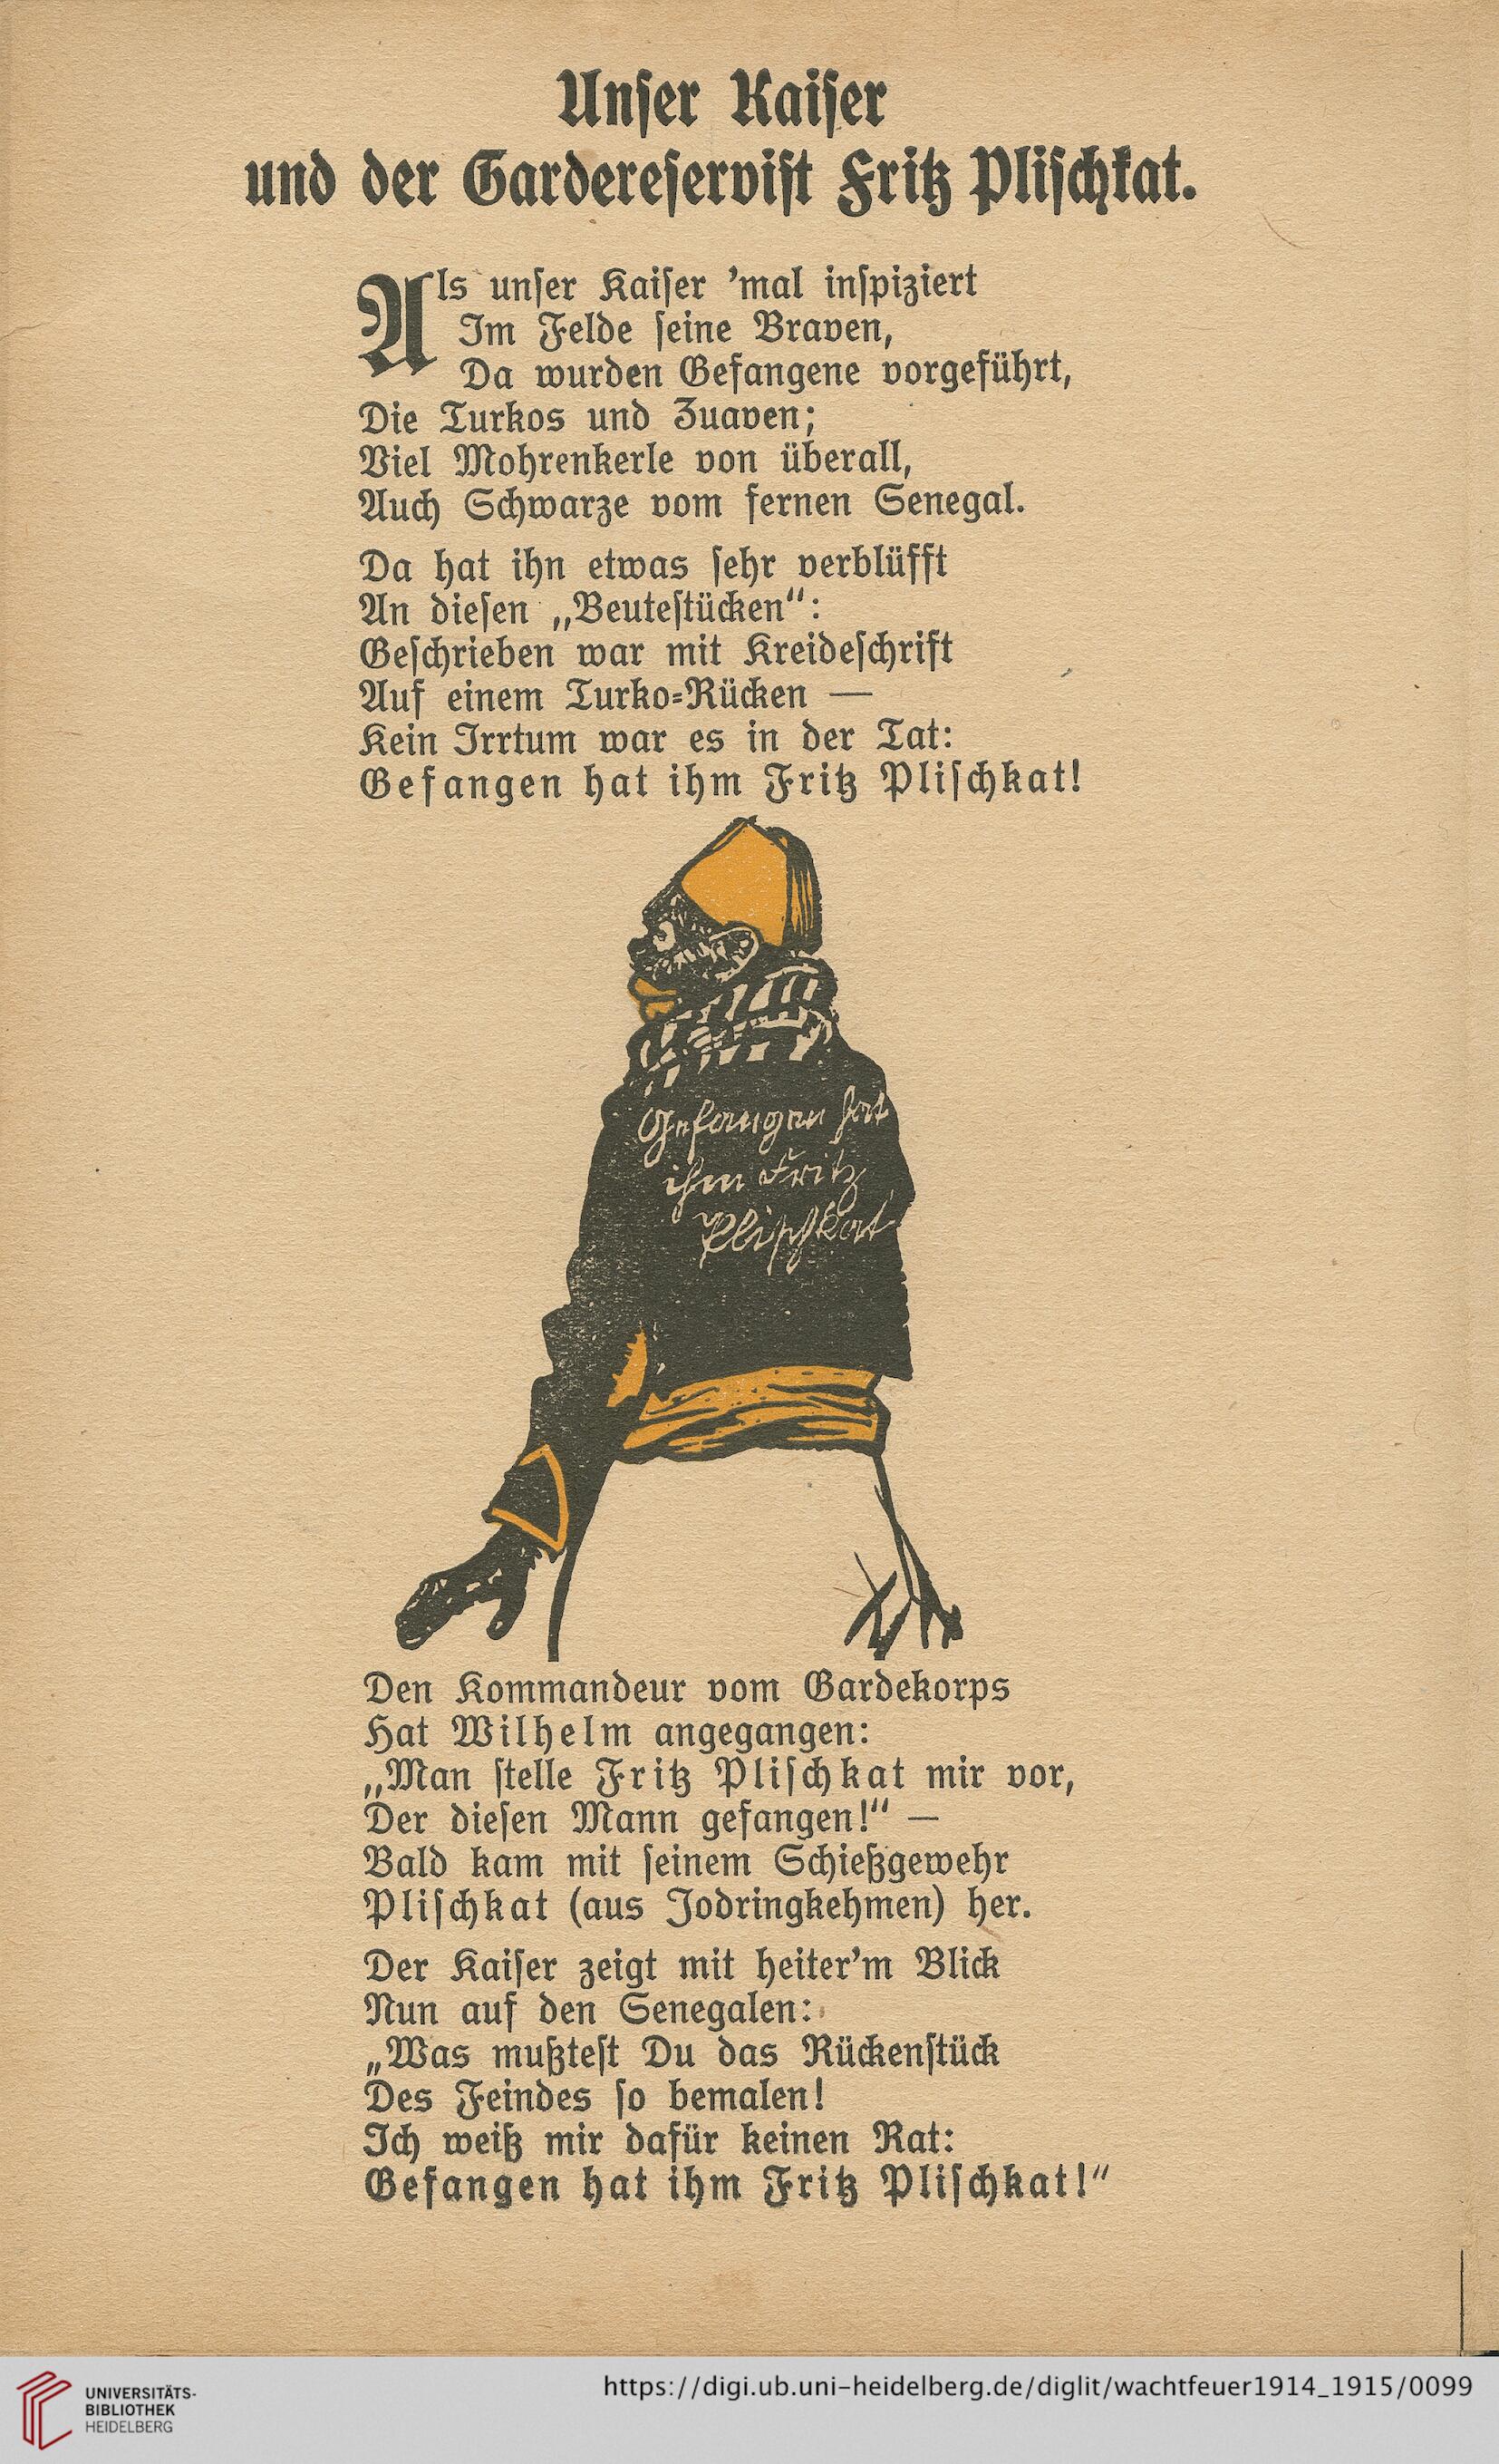 Unser Kaiser
und der Gardereservist Fritz Plischkat.
Als unser Kaiser 'mal inspiziert
Im Felde seine Braven,
Da wurden Gefangene vorgeführt,
Die Turkos und Zuaven;
Viel Mohrenkerle von überall,
Auch Schwarze vom fernen Senegal.
Da hat ihn etwas sehr verblüfft
An diesen „Beutestücken“:
Geschrieben war mit Kreideschrift
Auf einem Turko-Rücken —
Kein Irrtum war es in der Tat:
Gefangen hat ihm Fritz Plischkat!
Gefangen hat
ihm Fritz
Plischkat
Den Kommandeur vom Gardekorps
Hat Wilhelm angegangen:
„Man stelle Fritz Plischkat mir vor,
Der diesen Mann gefangen!“ —
Bald kam mit seinem Schießgewehr
Plischkat (aus Jodringkehmen) her.
Der Kaiser zeigt mit heiter'm Blick
Nun auf den Senegalen:
„Was mußtest Du das Rückenstück
Des Feindes so bemalen!
Ich weiß mir dafür keinen Rat:
Gefangen hat ihm Fritz Plischkat!“
UNIVERSITÄTS-
BIBLIOTHEK
HEIDELBERG
https://digi.ub.uni-heidelberg.de/diglit/wachtfeuer1914_1915/0099